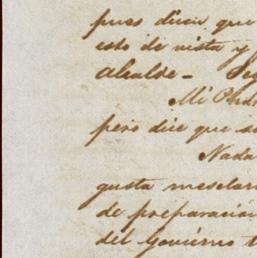 pues dicen que
esto de vista y
Alcalde -
Mi
pero dice que
Nada
gusta mesclar
de preparación
del Govierno